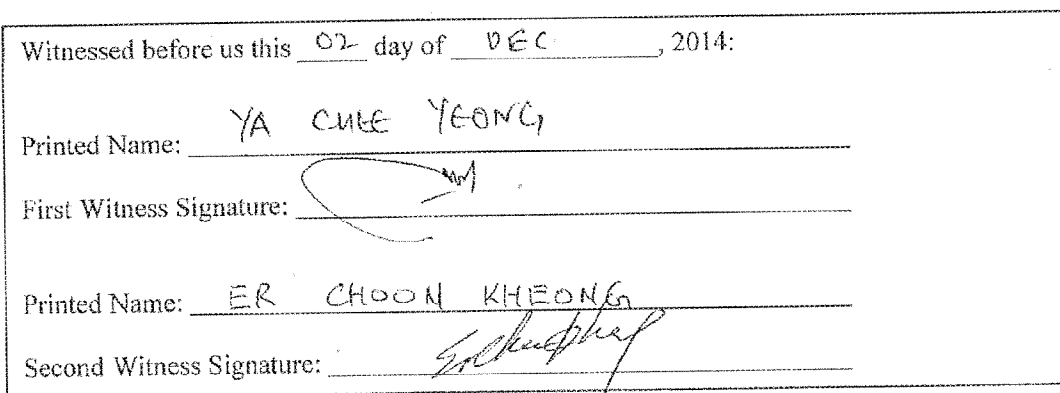 Witnessed before us this 02 day of DEC, 2014:
Printed Name: YA CHEE YEONG
First Witness Signature:
Printed Name: ER CHOON KHEONG
Second Witness Signature: